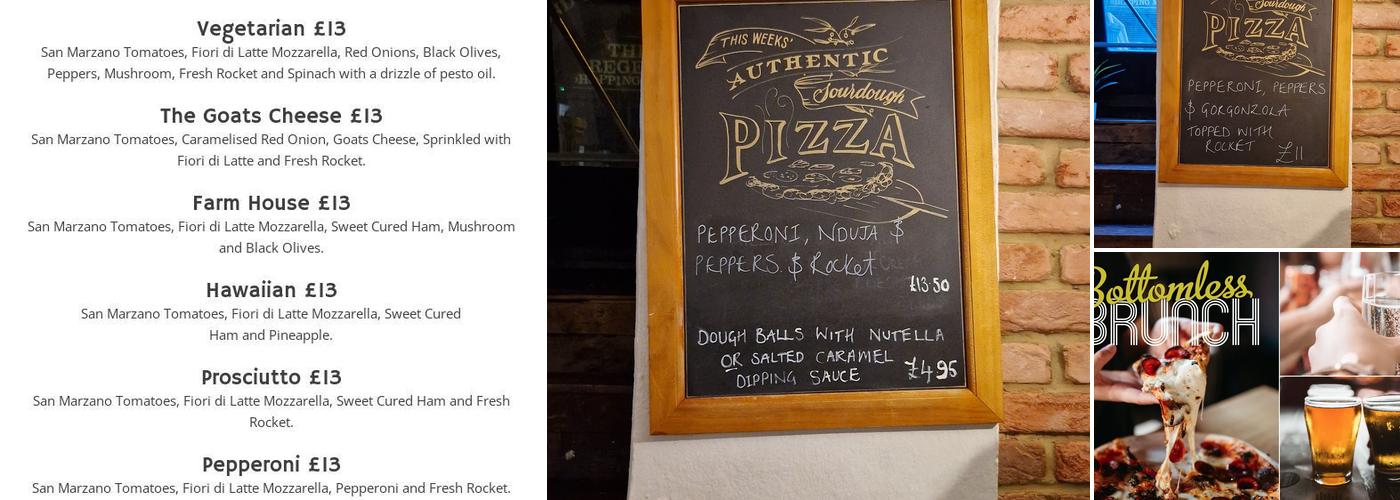 Vegetarian £13
San Marzano Tomatoes, Fiori di Latte Mozzarella, Red Onions, Black Olives,
Peppers, Mushroom, Fresh Rocket and Spinach with a drizzle of pesto oil.
The Goats Cheese £13
San Marzano Tomatoes, Caramelised Red Onion, Goats Cheese, Sprinkled with
Fiori di Latte and Fresh Rocket.
Farm House £13
San Marzano Tomatoes, Fiori di Latte Mozzarella, Sweet Cured Ham, Mushroom
and Black Olives.
Hawaiian £13
San Marzano Tomatoes, Fiori di Latte Mozzarella, Sweet Cured
Ham and Pineapple.
Prosciutto £13
San Marzano Tomatoes, Fiori di Latte Mozzarella, Sweet Cured Ham and Fresh
Rocket.
Pepperoni £13
San Marzano Tomatoes, Fiori di Latte Mozzarella, Pepperoni and Fresh Rocket.
THIS WEEKS'
AUTHENTIC
Sourdough
PIZZA
PEPPERONI, NDUJA &
PEPPERS. & Rocket
£13.50
DOUGH BALLS WITH NUTELLA
OR SALTED CARAMEL
DIPPING SAUCE £4.95
Sourdough
PIZZA
PEPPERONI, PEPPERS
& GORGONZOLA
TOPPED WITH
ROCKET £11
Bottomless
BRUNCH